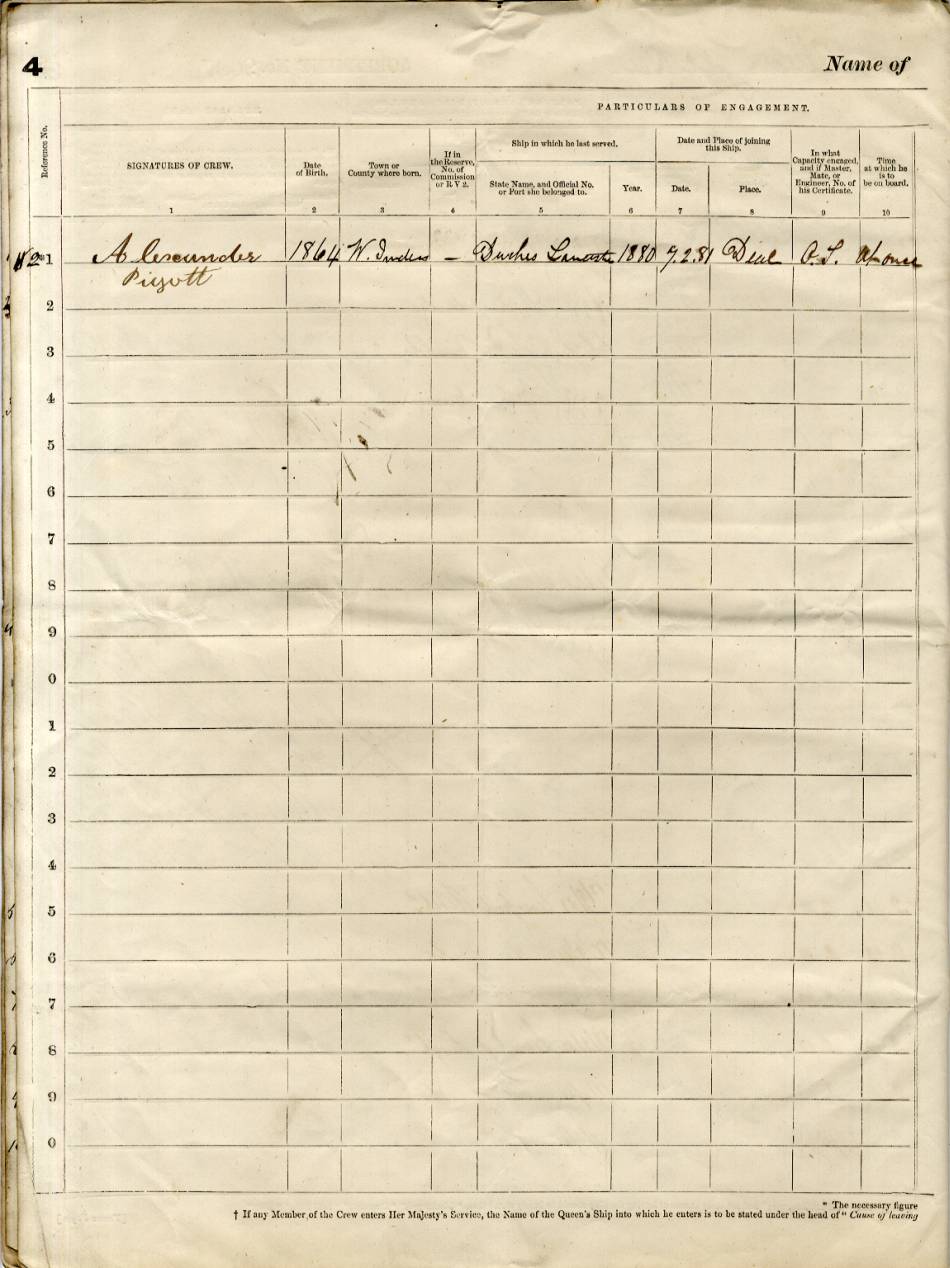 4 Name of
PARTICULARS OF ENGAGEMENT.
Reference No.
SIGNATURES OF CREW.
Date
of Birth.
Town or
County where born.
If in
the Reserve,
No. of
Commission
or R V 2.
Ship in which he last served.
State Name, and Official No.
or Port she belonged to.
Year.
Date and Place of joining
this Ship.
Date.
Place.
In what
Capacity engaged,
and if Master,
Mate, or
Engineer, No. of
his Certificate.
Time
at which he
is to
be on board.
1 2 3 4 5 6 7 8 9 10
1 Alexander 1864 W. Indies – Duches Lancaster 1880 7.2.81 Deal O.S. At once
Pigott
2
3
4
5
6
7
8
9
0
1
2
3
4
5
6
7
8
9
0
* The necessary figure
† If any Member of the Crew enters Her Majesty's Service, the Name of the Queen's Ship into which he enters is to be stated under the head of "Cause of leaving